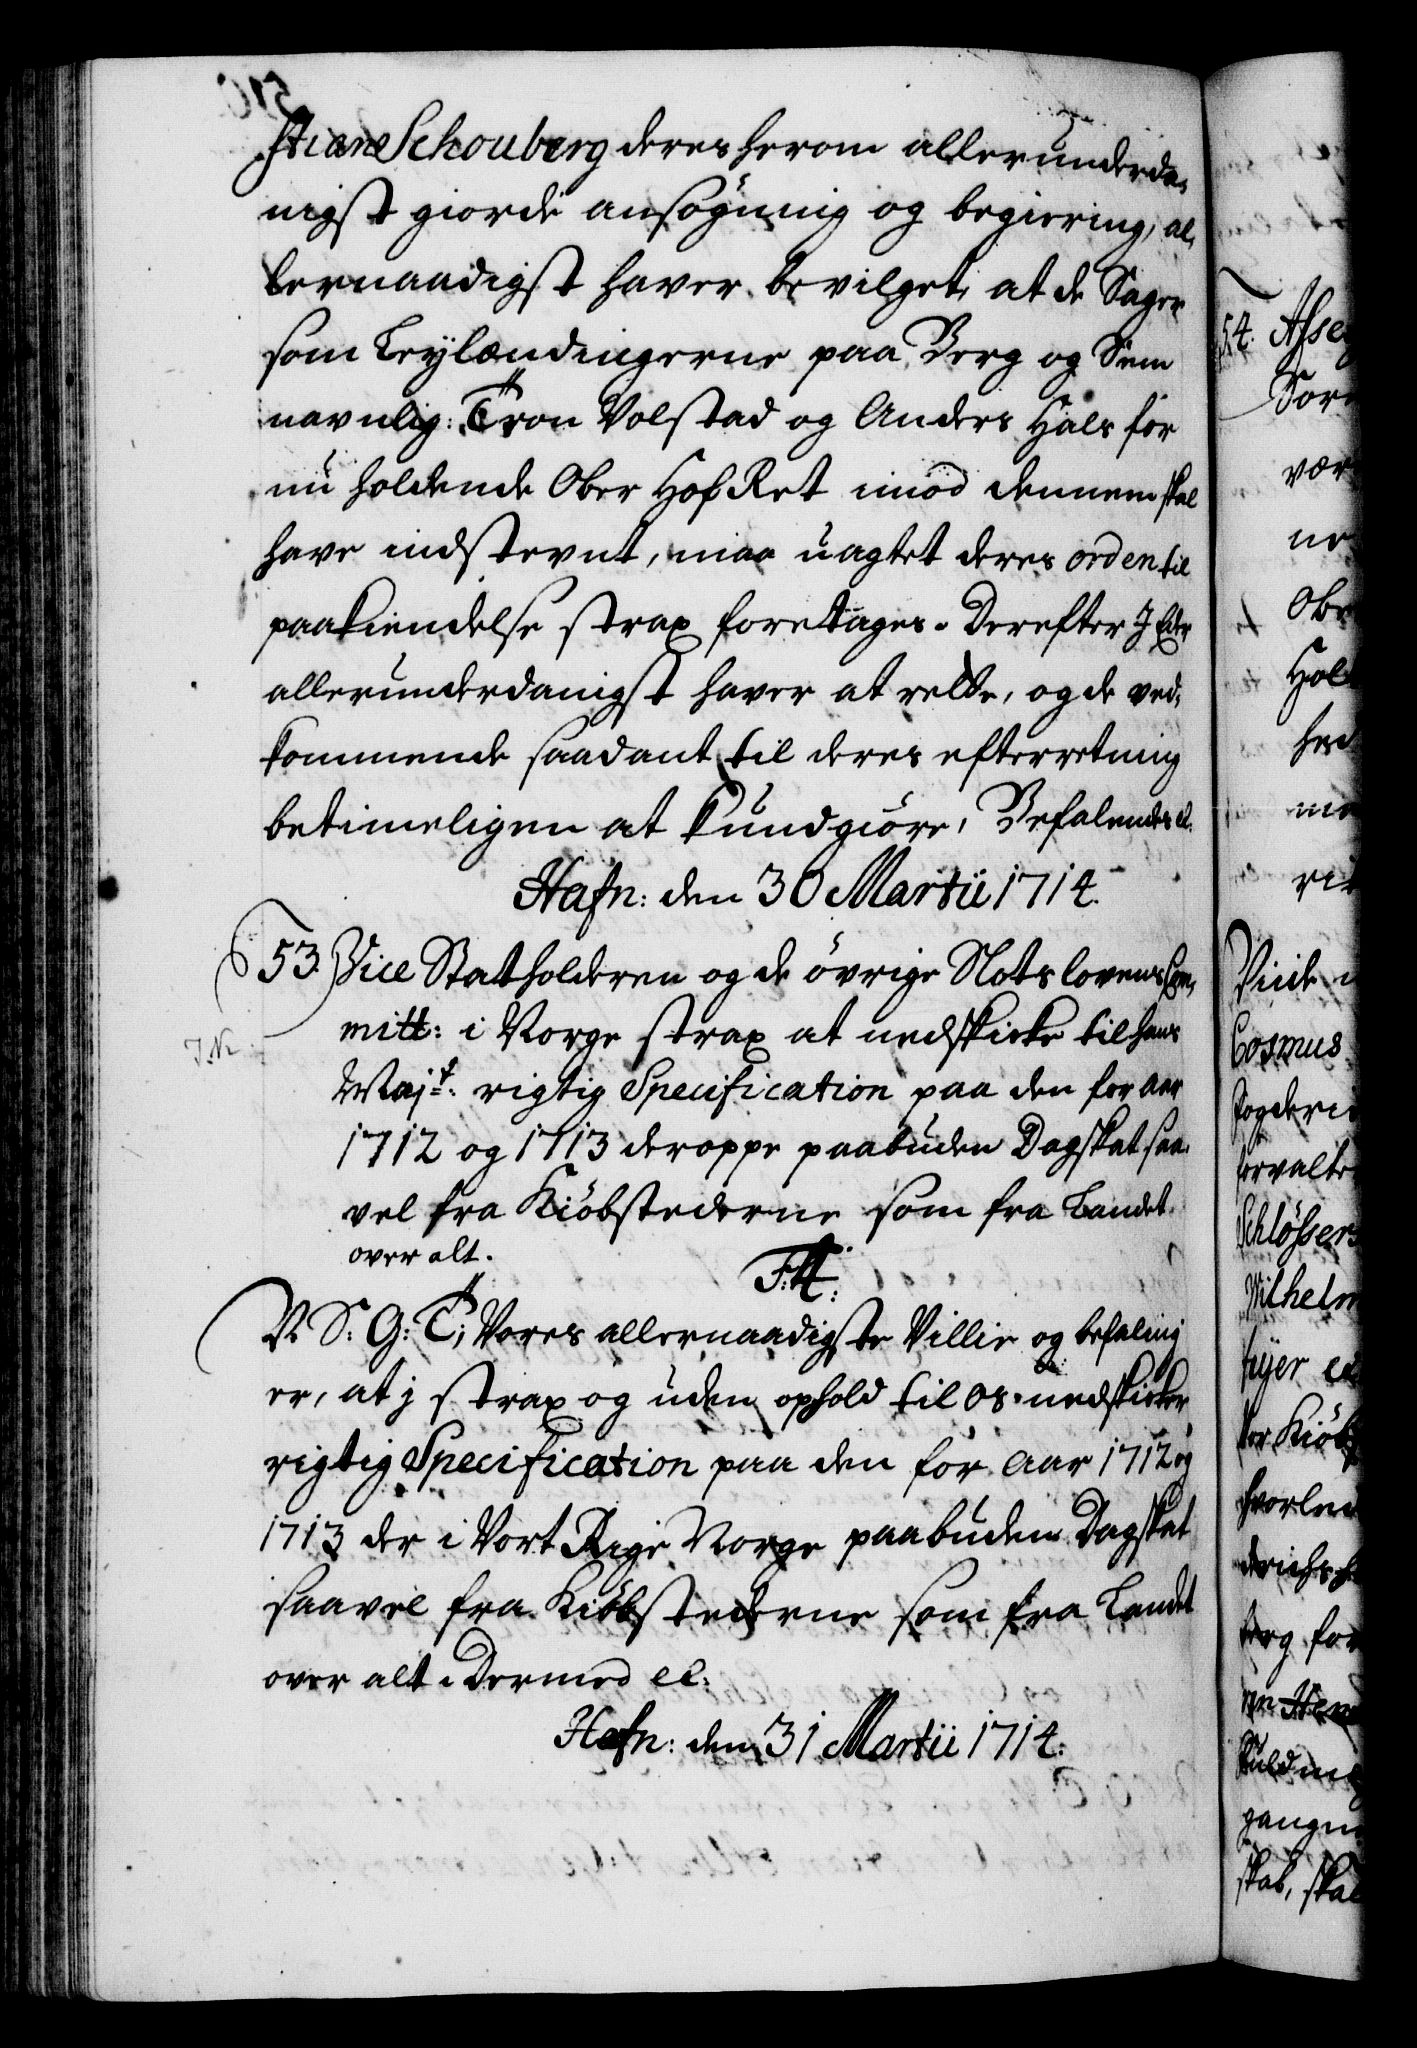 stiane Schouberg deres herom allerunderda-
nigst giorde ansøgning og begiering, al-
lernaadigst haver bevilget, at de Sager
som Leylændingerne paa Berg og Sem
navnlig: Tron Volstad og Anders Hals for
nu holdende Ober Hof Ret imod dennem skal
have indstevnt, maa uagtet deres orden til
paakiendelse strax foretages. Derefter I Eder
allerunderdanigst haver at rette, og de ved-
kommende saadant til deres efterretning
betimeligen at kundgiøre, Befalendes &c.
Hafn: den 30 Martii 1714.
53. Vice Statholderen og de øvrige Slotslovens Com-
mitt: i Norge strax at nedskicke til hans
Majt: rigtig Specification paa den for aar
1712 og 1713 deroppe paabuden Dagskat saa-
vel fra Kiøbstederne som fra Landet
over alt.
F:4.
V. S: G: T; Vores allernaadigste Villie og befaling
er, at j strax og uden ophold til os nedskicker
rigtig Specification paa den for Aar 1712 og
1713 der i Vort Rige Norge paabuden Dagskat
saavel fra Kiøbstederne som fra Landet
over alt. Dermed &c:
Hafn: den 31 Martii 1714.
54.
Cosmus